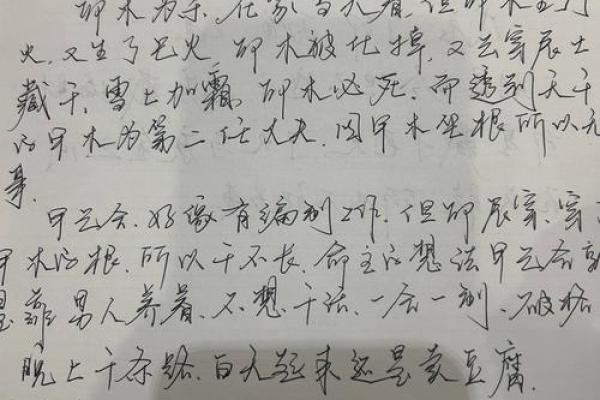 卯木为 看,但卯木生了
火,又生了巳火,卯木被化掉,又 穿辰土
藏干,雪上加霜,卯木必死,而透到天干
的甲木为第二任丈夫,因甲木坐根所以无
事。
甲己合,好像有编制工作,但卯辰穿,穿
甲木的根,所以干不长,命主的想法甲己合
是靠男人养着,不想干活,一合一制,破格
晚上千条路,白天起来还是卖豆腐.